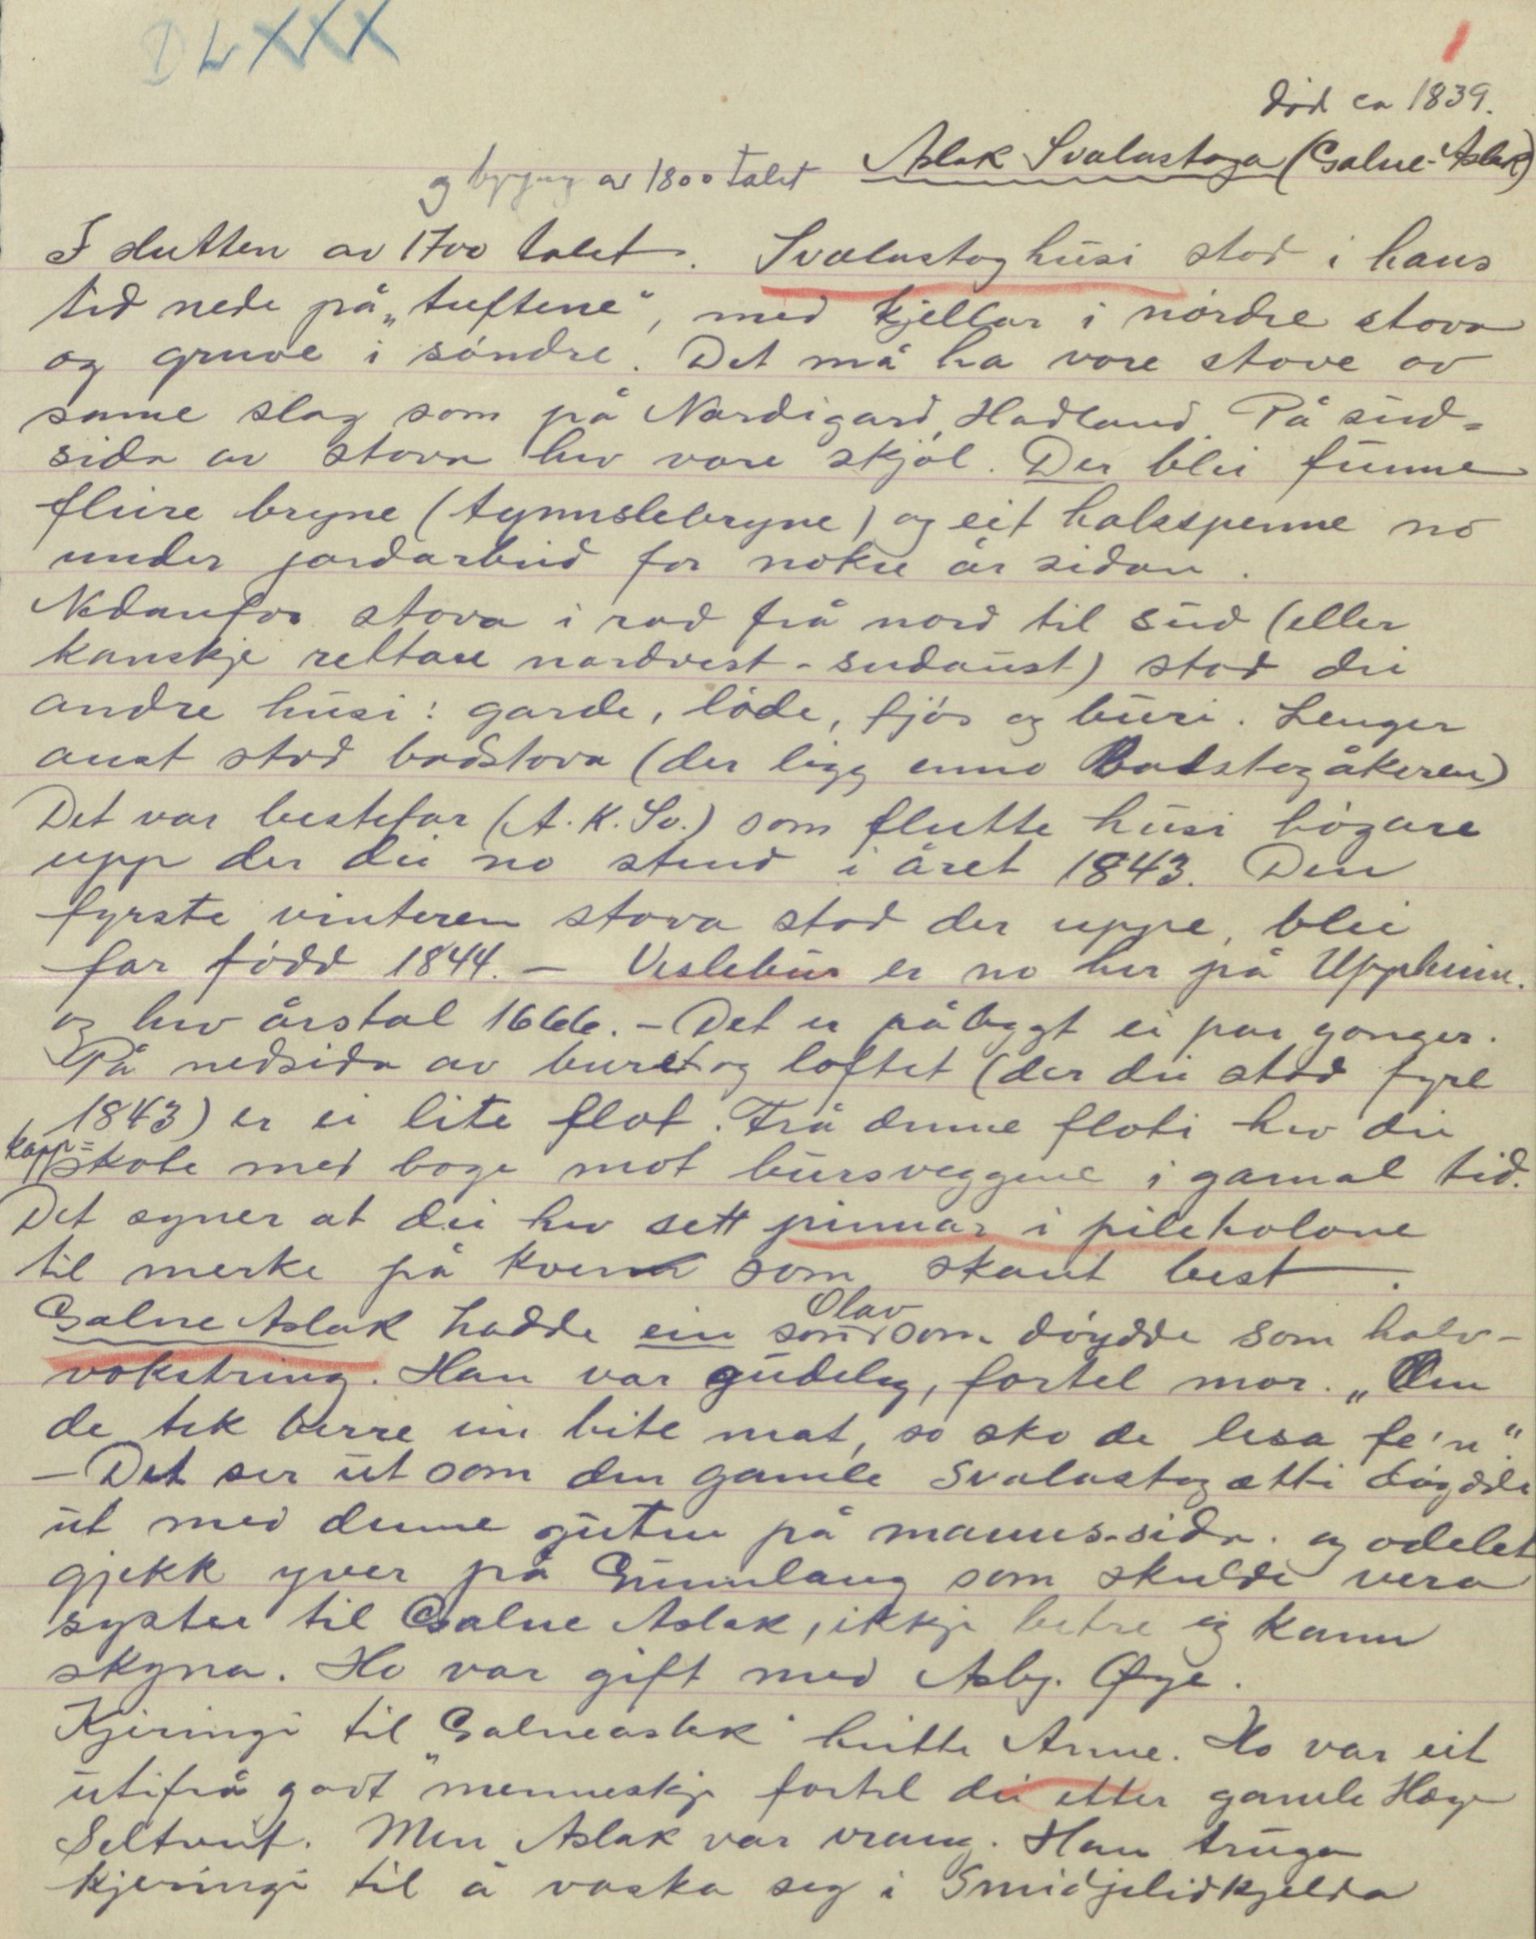 DLXXX
1
død ca 1839.
Aslak Svalastoga (Galne-Aslak)
og bygjng av 1800 talet
I slutten av 1700 talet. Svalastoghusi stod i hans
tid nede på „tuftene“, med kjellar i nørdre stova
og gruve i søndre. Det må ha vore stove av
same slag som på Nordigard, Hadland. På sud-
sida av stova hev vore skjøl. Der blei funne
fleire bryne (tynnslebryne) og eit halsspenne no
under jordarbeid for nokre år sidan.
Nedanfor stova i rad frå nord til sud (eller
kanskje rettare nordvest-sudaust) stod dei
andre husi: garde, løde, fjøs og buri. Lenger
aust stod badstova (der ligg enno Badstogåkeren)
Det var bestefar (A. K. Sv.) som flutte husi høgare
upp der dei no stend i året 1843. Den
fyrste vinteren stova stod der uppe, blei
far fødd 1844. – Veslebur er no her på Uppheim.
og hev årstal 1666. – Det er påbygt ei par gonger.
På nedsida av buret og loftet (der dei stod fyre
1843) er ei lite flot. Frå denne floti hev dei
kapp-
skote med boge mot bursveggene i gamal tid.
Det syner at dei hev sett pinnar i pileholone
til merke på kven som skaut best.
Olav
Galne Aslak hadde ein son som døydde som halv-
vokstring. Han var gudeleg, fortel mor. „Em
de tek berre ein bite mat, so sko de lesa fe'n“.
– Det ser ut som den gamle Svalastogætti døydde
ut med denne guten på manns-sida. og odelet
gjekk yver på Gunnlaug som skulde vera
syster til Galne Aslak, ikkje betre eg kann
skyna. Ho var gift med Asbj. Øye.
Kjeringi til „Galneaslak“ heitte Anne. Ho var eit
utifrå godt menneskje fortel dei etter gamle Hæge
Seltveit. Men Aslak var vrang. Han truga
kjeringi til å vaska seg i Smidjelidkjelda